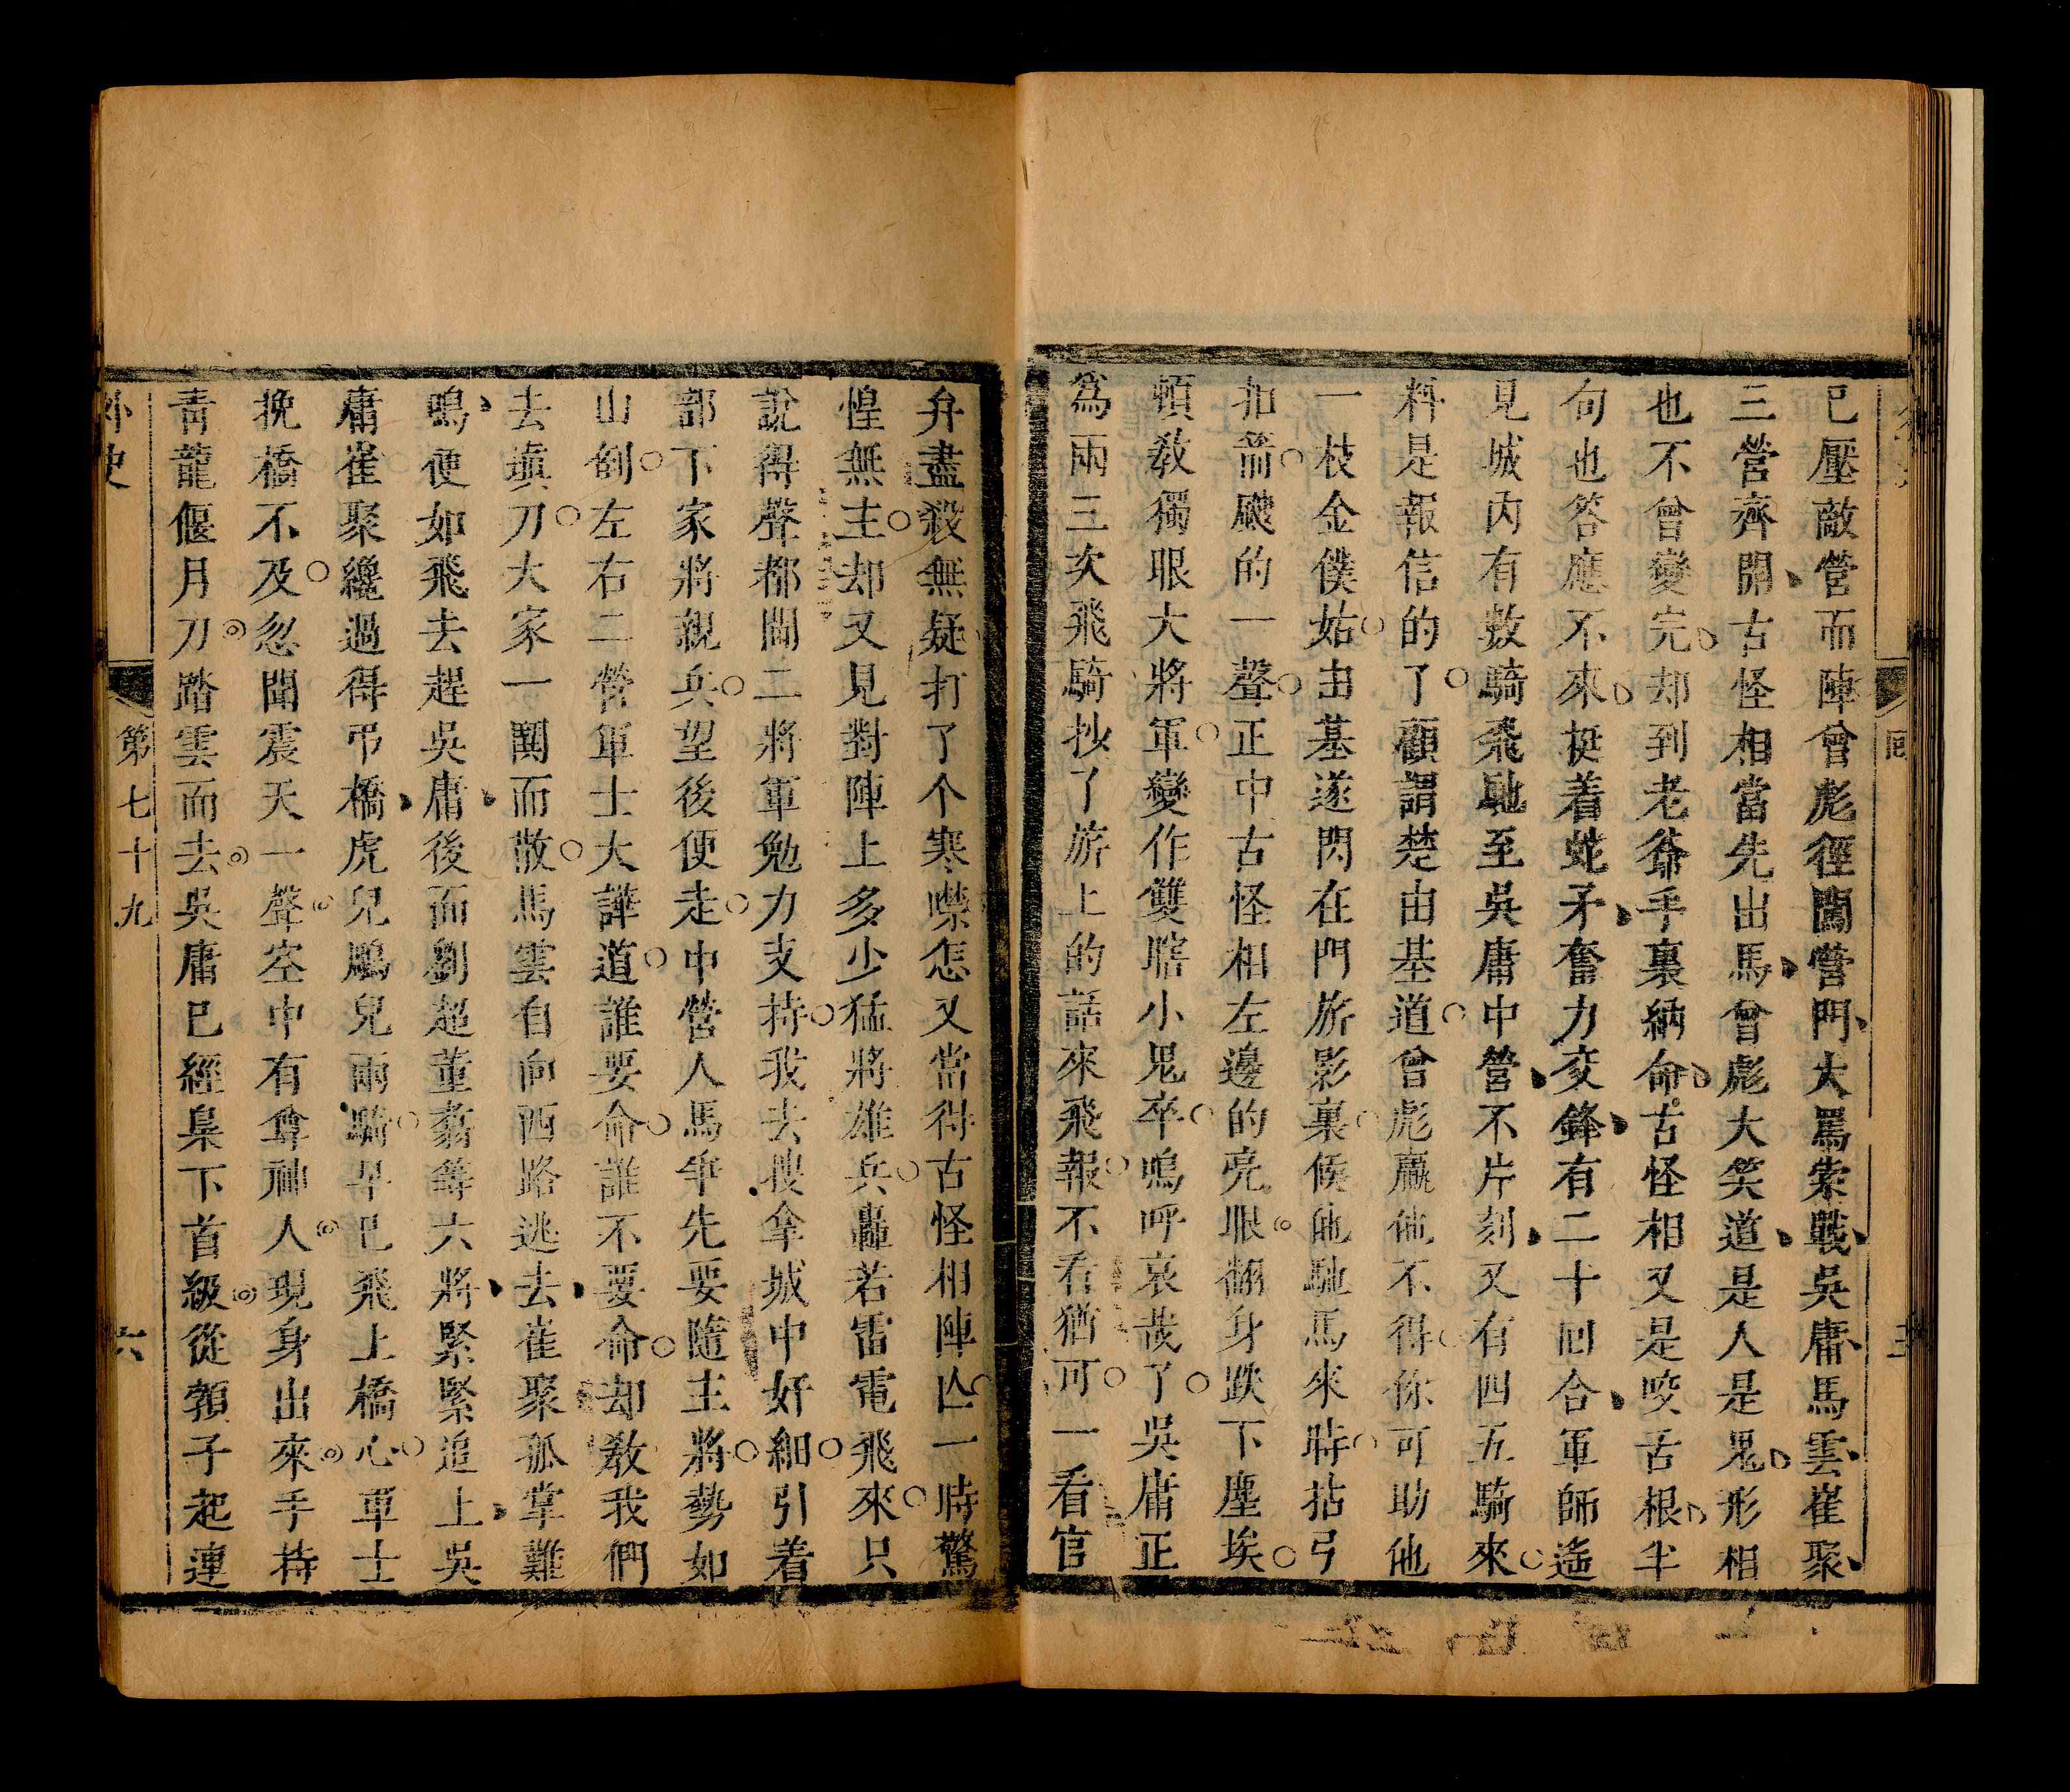 已壓敵營而陣曾彪徑闖營門大罵索戰吳庸馬雲崔聚
三營齊開古怪相當先出馬曾彪大笑道是人是鬼形相
也不曾變完却到老爺手裏納命古怪相又是咬舌根半
句也答應不來挺着蛇矛奮力交鋒有二十回合軍師遙
見城內有數騎飛馳至吳庸中營不片刻又有四五騎來
料是報信的了顧謂楚由基道曾彪贏他不得你可助他
一枝金僕姑由基遂閃在門旂影裏候他馳馬來時拈弓
扣箭颼的一聲正中古怪相左邊的亮眼翻身跌下塵埃
頓教獨眼大將軍變作雙瞎小鬼卒嗚呼哀哉了吳庸正
為兩三次飛騎抄了旂上的話來飛報不看猶可一看官
弁盡殺無疑打了个寒噤怎又當得古怪相陣亡一時驚
惶無主却又見對陣上多少猛將雄兵轟若雷電飛來只
說得聲都閫二將軍勉力支持我去搜拿城中奸細引着
部下家將親兵望後便走中營人馬爭先要隨主將勢如
山倒左右二營軍士大譁道誰要命誰不要命却教我們
去塡刀大家一鬨而散馬雲自向西路逃去崔聚孤掌難
鳴便如飛去趕吳庸後而劉超董翥等六將緊緊追上吳
庸崔聚纔過得弔橋虎兒鵰兒兩騎早已飛上橋心軍士
挽橋不及忽聞震天一聲空中有尊神人現身出來手持
靑龍偃月刀踏雲而去吳庸已經梟下首級從頸子起連
外史
第七十九
六